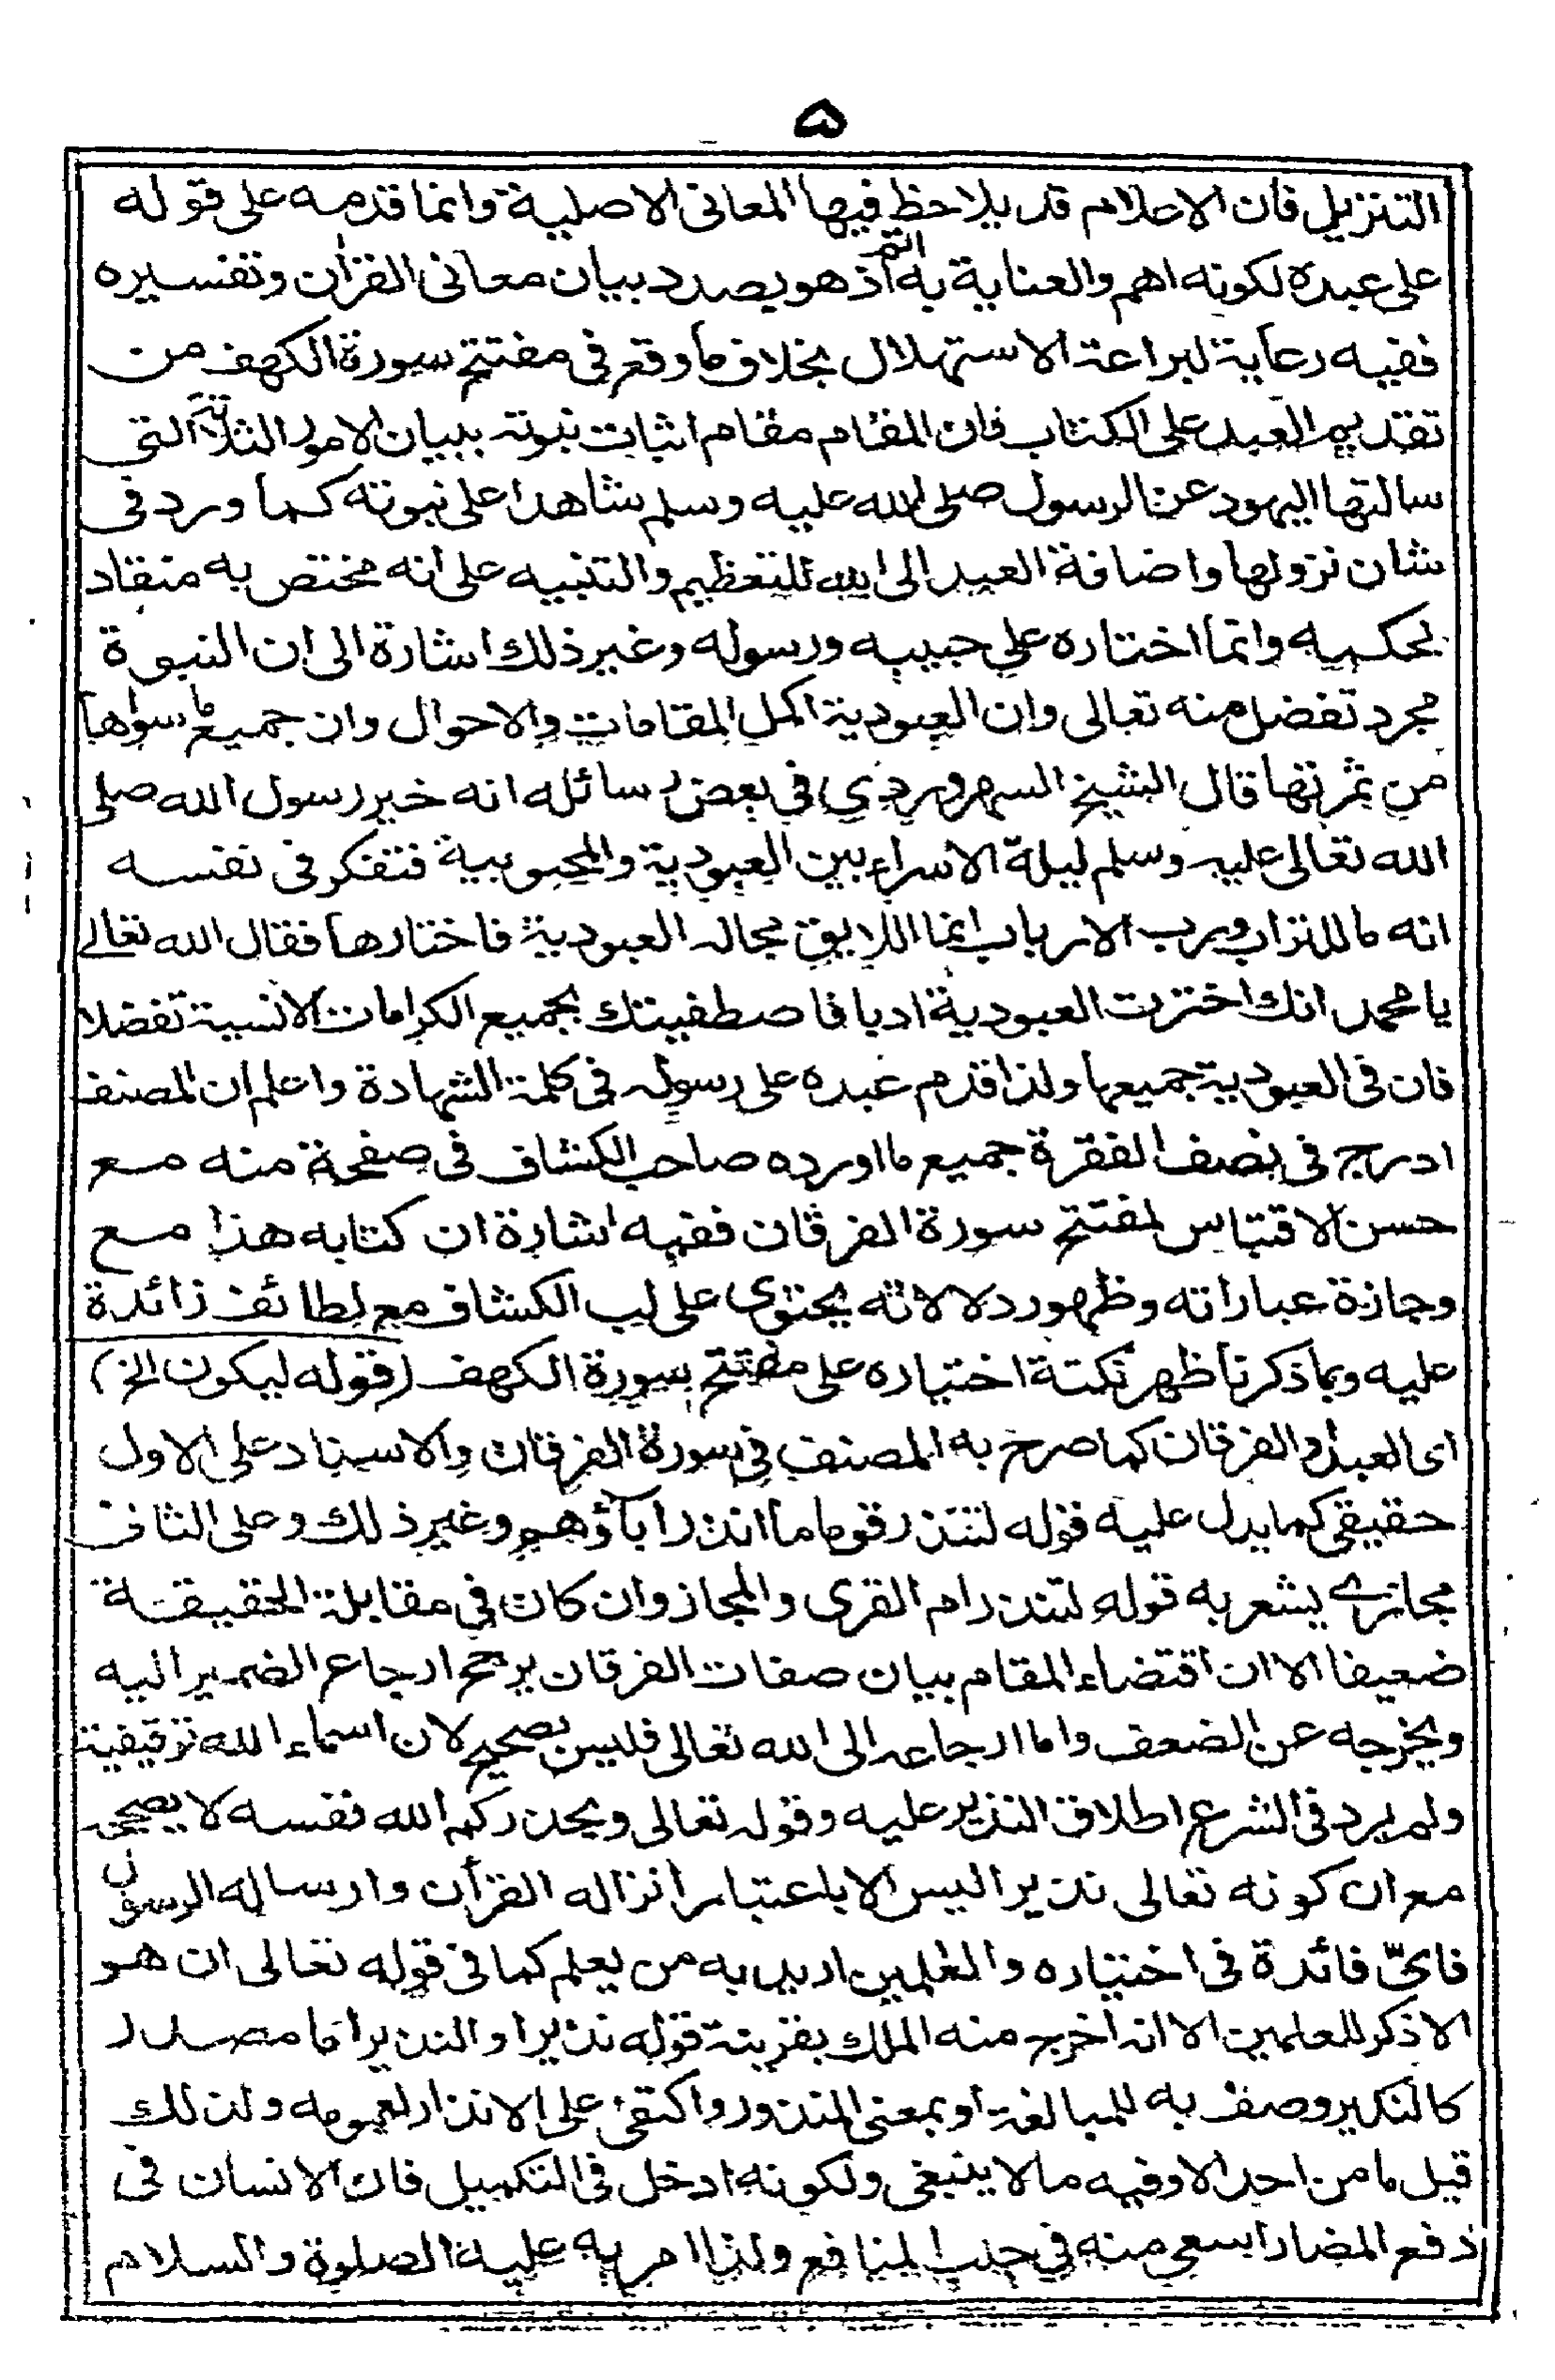 ۵
التنزيل فان الاعلام قد يلاحظ فيها المعانى الاصلية وانما قدمه على قوله
على عبده لكونه اهم والعناية به اتم اذ هو بصدد بيان معانى القران وتفسيره
ففيه رعاية لبراعة الاستهلال بخلاف ما وقع في مفتتح سورة الكهف من
تقديم العبد على الكتاب فان المقام مقام اثبات نبوته ببيان الامور الثلاثة التى
سالتها اليهود عن الرسول صلى الله عليه وسلم شاهدا على نبوته كما ورد فى
شان نزولها واضافة العبد الى الله للتعظيم والتنبيه على انه مختص به منقاد
لحكمه وانما اختاره على حبيبه ورسوله وغير ذلك اشارة الى ان النبوة
مجرد تفضل منه تعالى وان العبودية اكمل المقامات والاحوال وان جميع ما سواها
من ثمرتها قال الشيخ السهروردي في بعض رسائله انه خير رسول الله صلى
الله تعالى عليه وسلم ليلة الاسراء بين العبودية والمحبوبية فتفكر فى نفسه
انه ما للتراب ورب الارباب انما اللايق بحاله العبودية فاختارها فقال الله تعالے
يا محمد انك اخترت العبودية ادبا فاصطفيتك بجميع الكرامات الانسية تفضلا
فان فى العبودية جميعها ولذا قدم عبده على رسوله فى كلمة الشهادة واعلم ان المصنف
ادرج فى نصف الفقرة جميع ما اورده صاحب الكشاف فى صفحة منه مع
حسن الاقتباس لمفتتح سورة الفرقان ففيه اشارة ان كتابه هذا مع
وجازة عباراته وظهور دلالاته يحتوى على لب الكشاف مع لطائف زائدة
عليه وبما ذكرنا ظهر نكتة اختياره على مفتتح سورة الكهف (قوله ليكون الخ)
اى العبد او الفرقان كما صرح به المصنف في سورة الفرقان والاسناد على الاول
حقيقى كما يدل عليه قوله لتنذر قوما ما انذر آباؤهم وغير ذلك وعلى الثانى
مجازے يشعر به قوله لتنذر ام القرى والمجاز وان كان في مقابلة الحقيقة
ضعيفا الا ان اقتضاء المقام بيان صفات الفرقان يرجح ارجاع الضمير اليه
ويخرجه عن الضعف واما ارجاعه الى الله تعالى فليس بصحيح لان اسماء الله توقيفية
ولم يرد فى الشرع اطلاق النذير عليه وقوله تعالى ويحذركم الله نفسه لا يصححه
مع ان كونه تعالى نذيرا ليس الا باعتبار انزاله القرأن وارساله الرسول
فاىّ فائدة فى اختياره والعلمين اريد به من يعلم كما فى قوله تعالى ان هو
الا ذكر للعلمين الا انه اخرج منه الملك بقرينة قوله نذيرا والنذير اما مصدر
كالنكير وصف به للمبالغة او بمعنى المنذر واكتفى على الانذار لعمومه ولذلك
قيل ما من احد الا وفيه ما لا ينبغى ولكونه ادخل فى التكميل فان الانسان فى
دفع المضار اسعى منه في جلب المنافع ولذا امر به عليه الصلوة والسلام